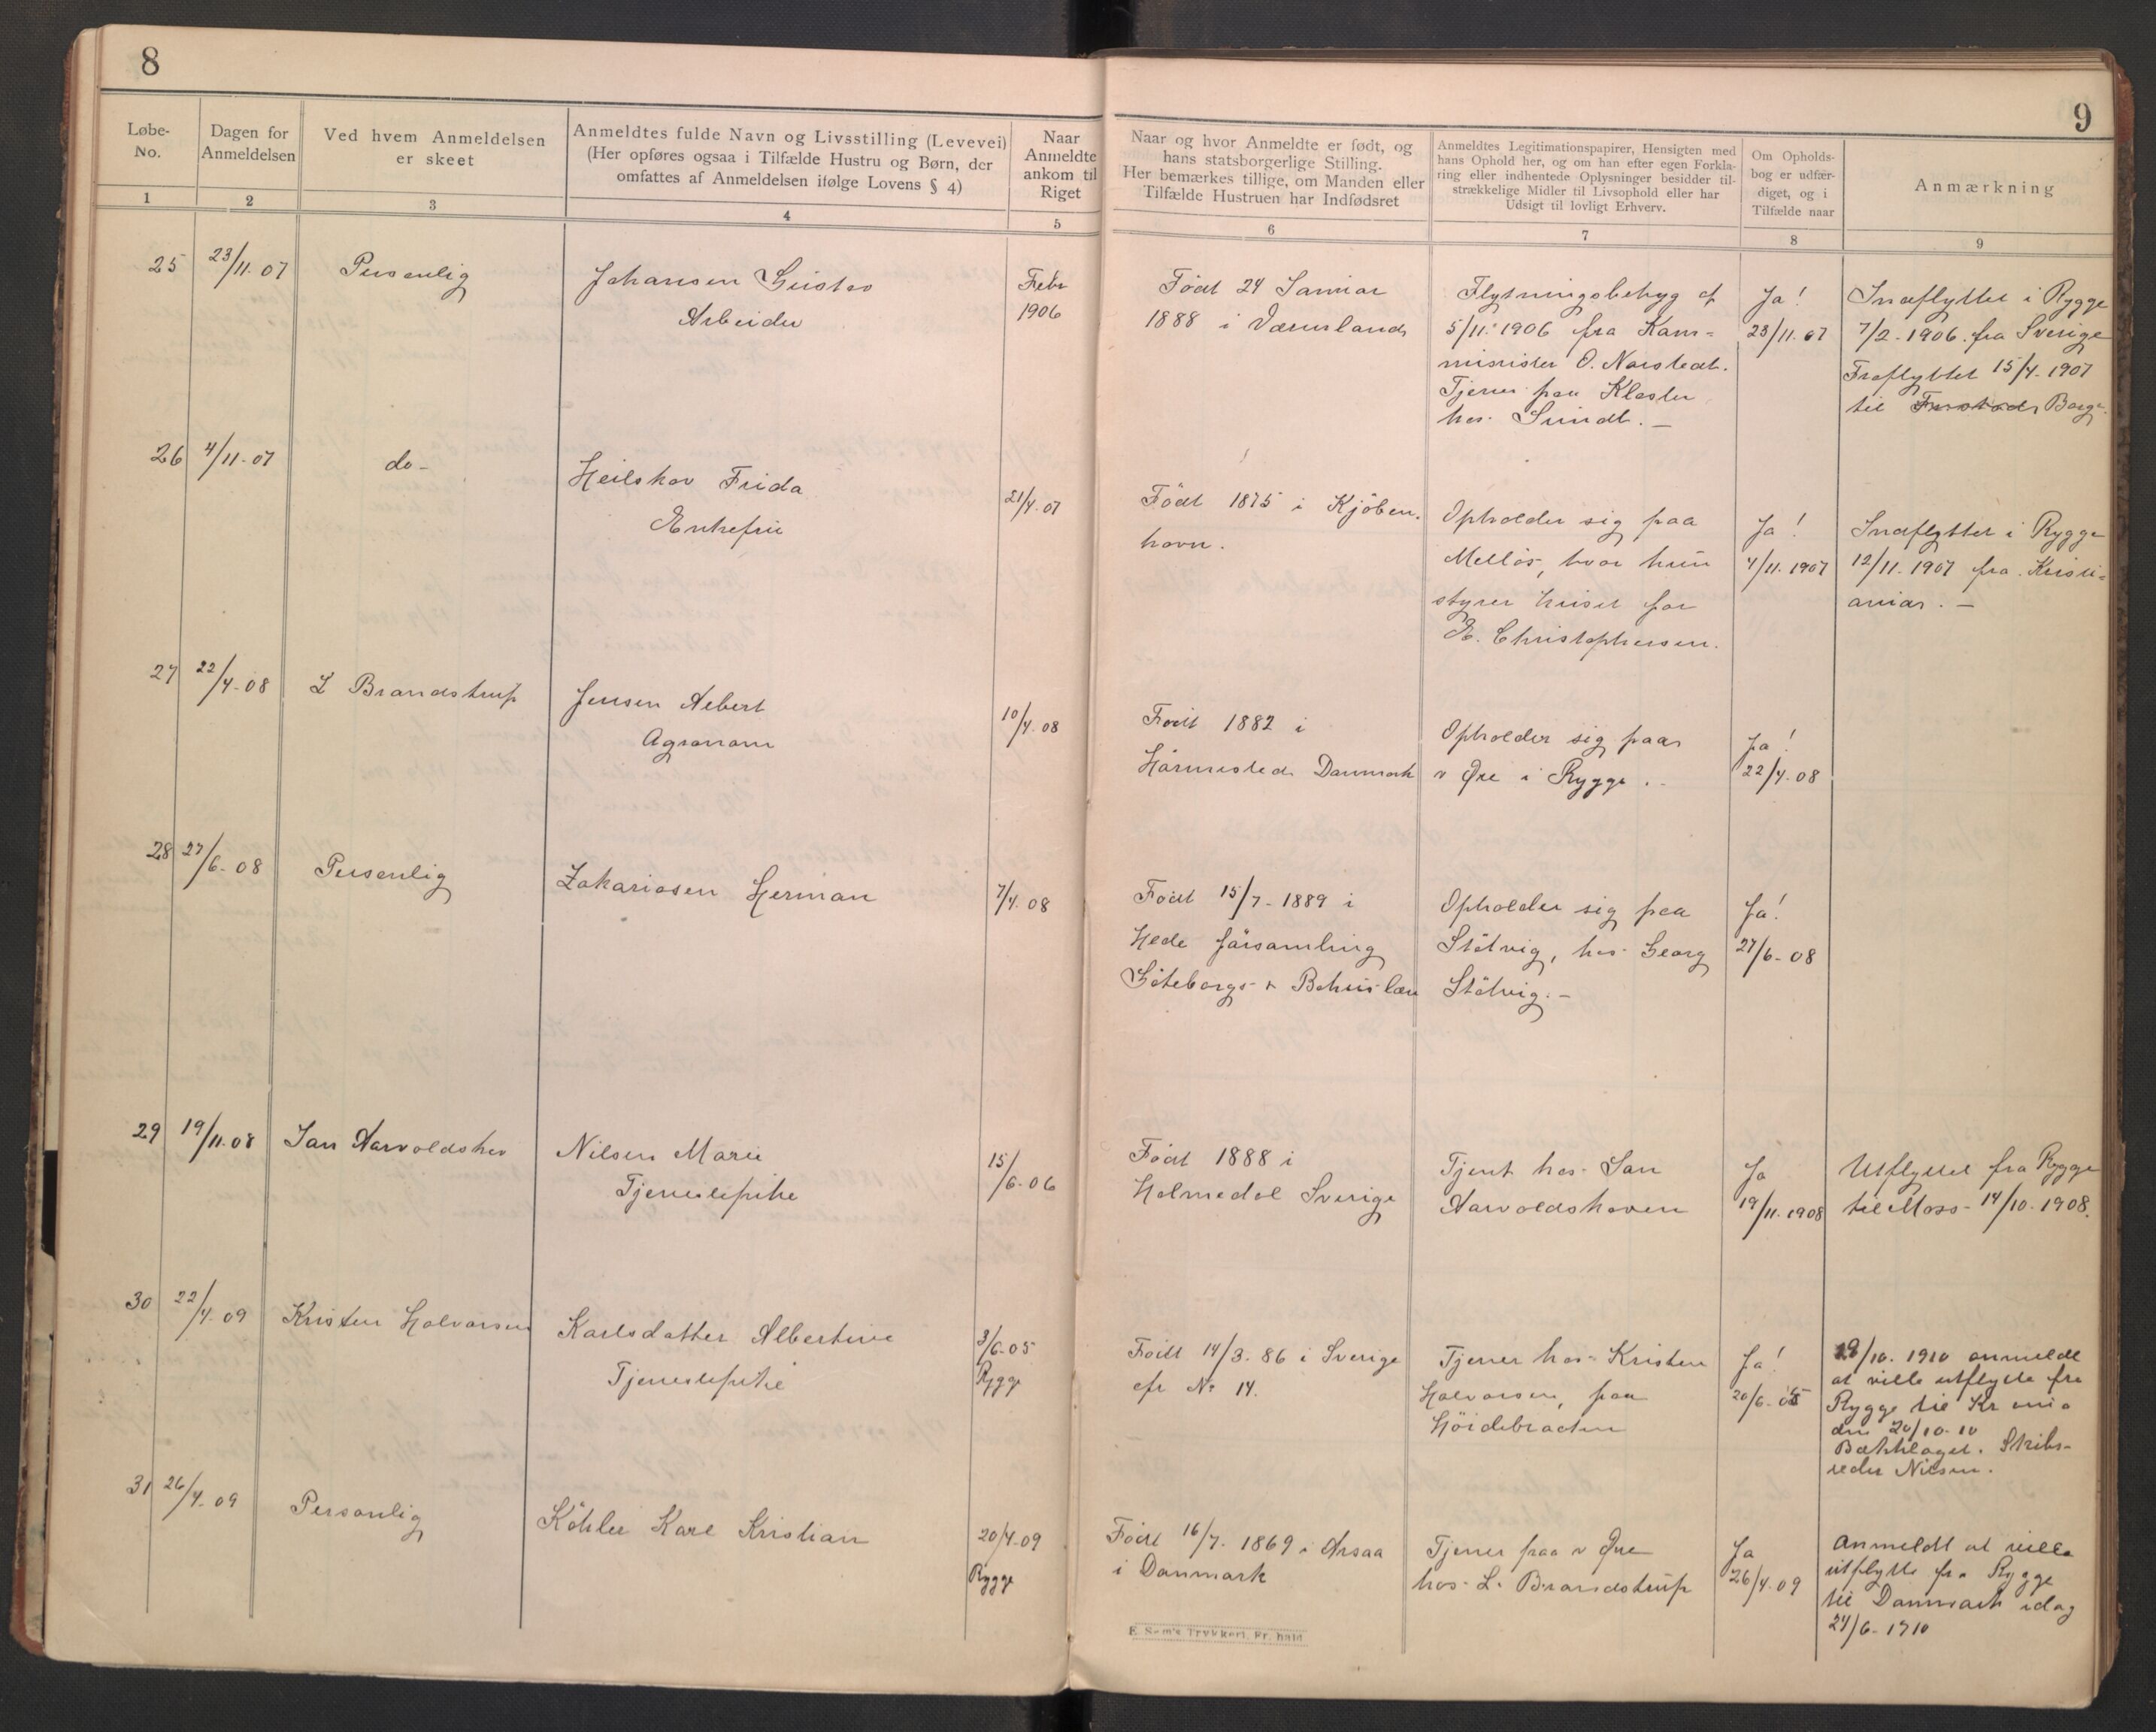 8
Løbe-
No.
Dagen for
Anmeldelsen
Ved hvem Anmeldelsen
er skeet
Anmeldtes fulde Navn og Livsstilling (Levevei)
(Her opføres ogsaa i Tilfælde Hustru og Børn, der
omfattes af Anmeldelsen ifølge Lovens § 4)
Naar
Anmeldte
ankom til
Riget
1
2
3
4
5
25
23/11.07
Personlig
Johansen Gustav
Arbeider
Febr
1906
26
4/11-07
do-
Heilskov Frida
Enkefru
21/4.07
27
22/4-08
L Brandstrup
Jensen Albert
Agronom
10/4.08
28
27/6-08
Personlig
Zakariasen Herman
7/4.08
29
19/11.08
Jan Aarvoldshov
Nilsen Marie
Tjenestepike
15/6-06
30
22/4-09
Kristen Halvorsen
Karlsdatter Albertine
Tjenestepike
3/6-05
Rygge
31
26/4-09
Personlig
Köhler Karl Kristian
20/4-09
Rygge
9
Naar og hvor Anmeldte er født, og
hans statsborgerlige Stilling.
Her bemærkes tillige, om Manden eller
Tilfælde Hustruen har Indfødsret
Anmeldtes Legitimationspapirer, Hensigten med
hans Ophold her, og om han efter egen Forkla-
ring eller indhentede Oplysninger besidder til-
strækkelige Midler til Livsophold eller har
Udsigt til lovligt Erhverv.
Om Opholds-
bog er udfær-
diget, og i
Tilfælde naar
Anmærkning
6
7
8
9
Födt 24 Januar
1888 i Værmland
Flytningsbetyg af
5/11.1906 fra Kom-
minister O. Norstedt.
Tjener paa Kloster
hos Sundt. —
Ja!
23/11.07
Indflyttet i Rygge
7/2-1906. fra Sverige
Fraflyttet 15/4-1907
til Borge.
Födt 1875 i Kjöben.
havn.
Opholder sig paa
Mellös, hvor hun
styrer huset for
E. Christophersen.
Ja!
4/11.1907
Indflyttet i Rygge
12/11-1907 fra Kristi-
ania. —
Födt 1882 i
Hörmested Danmark
Opholder sig paa
v Öre i Rygge. -
Ja!
22/4.08
Födt 15/7-1889 i
Hede församling
Göteborgs & Bohuslän
Opholder sig paa
Stötvig, hos Georg
Stötvig. —
Ja!
27/6-08
Födt 1888 i
Holmedal Sverige
Tjent hos Jan
Aarvoldshoven
Ja
19/11.1908
Utflyttet fra Rygge
til Moss 14/10-1908.
Födt 14/3-86 i Sverige
cfr No 14.
Tjener hos Kristen
Halvorsen, paa
Höidebraaten
Ja!
20/6-05
19/10.1910 anmeldt
at ville utflytte fra
Rygge til Kr ania
den 20/10-10
Bækkelaget. Skibs-
reder Nilsen.
Födt 16/7-1869 i Aasaa
i Danmark
Tjener paa v Öre
hos L. Brandstrup
Ja
26/4.09
Anmeldt at ville
utflytte fra Rygge
til Danmark idag
24/6-1910
E. Sem's Trykkeri, Fr. hald